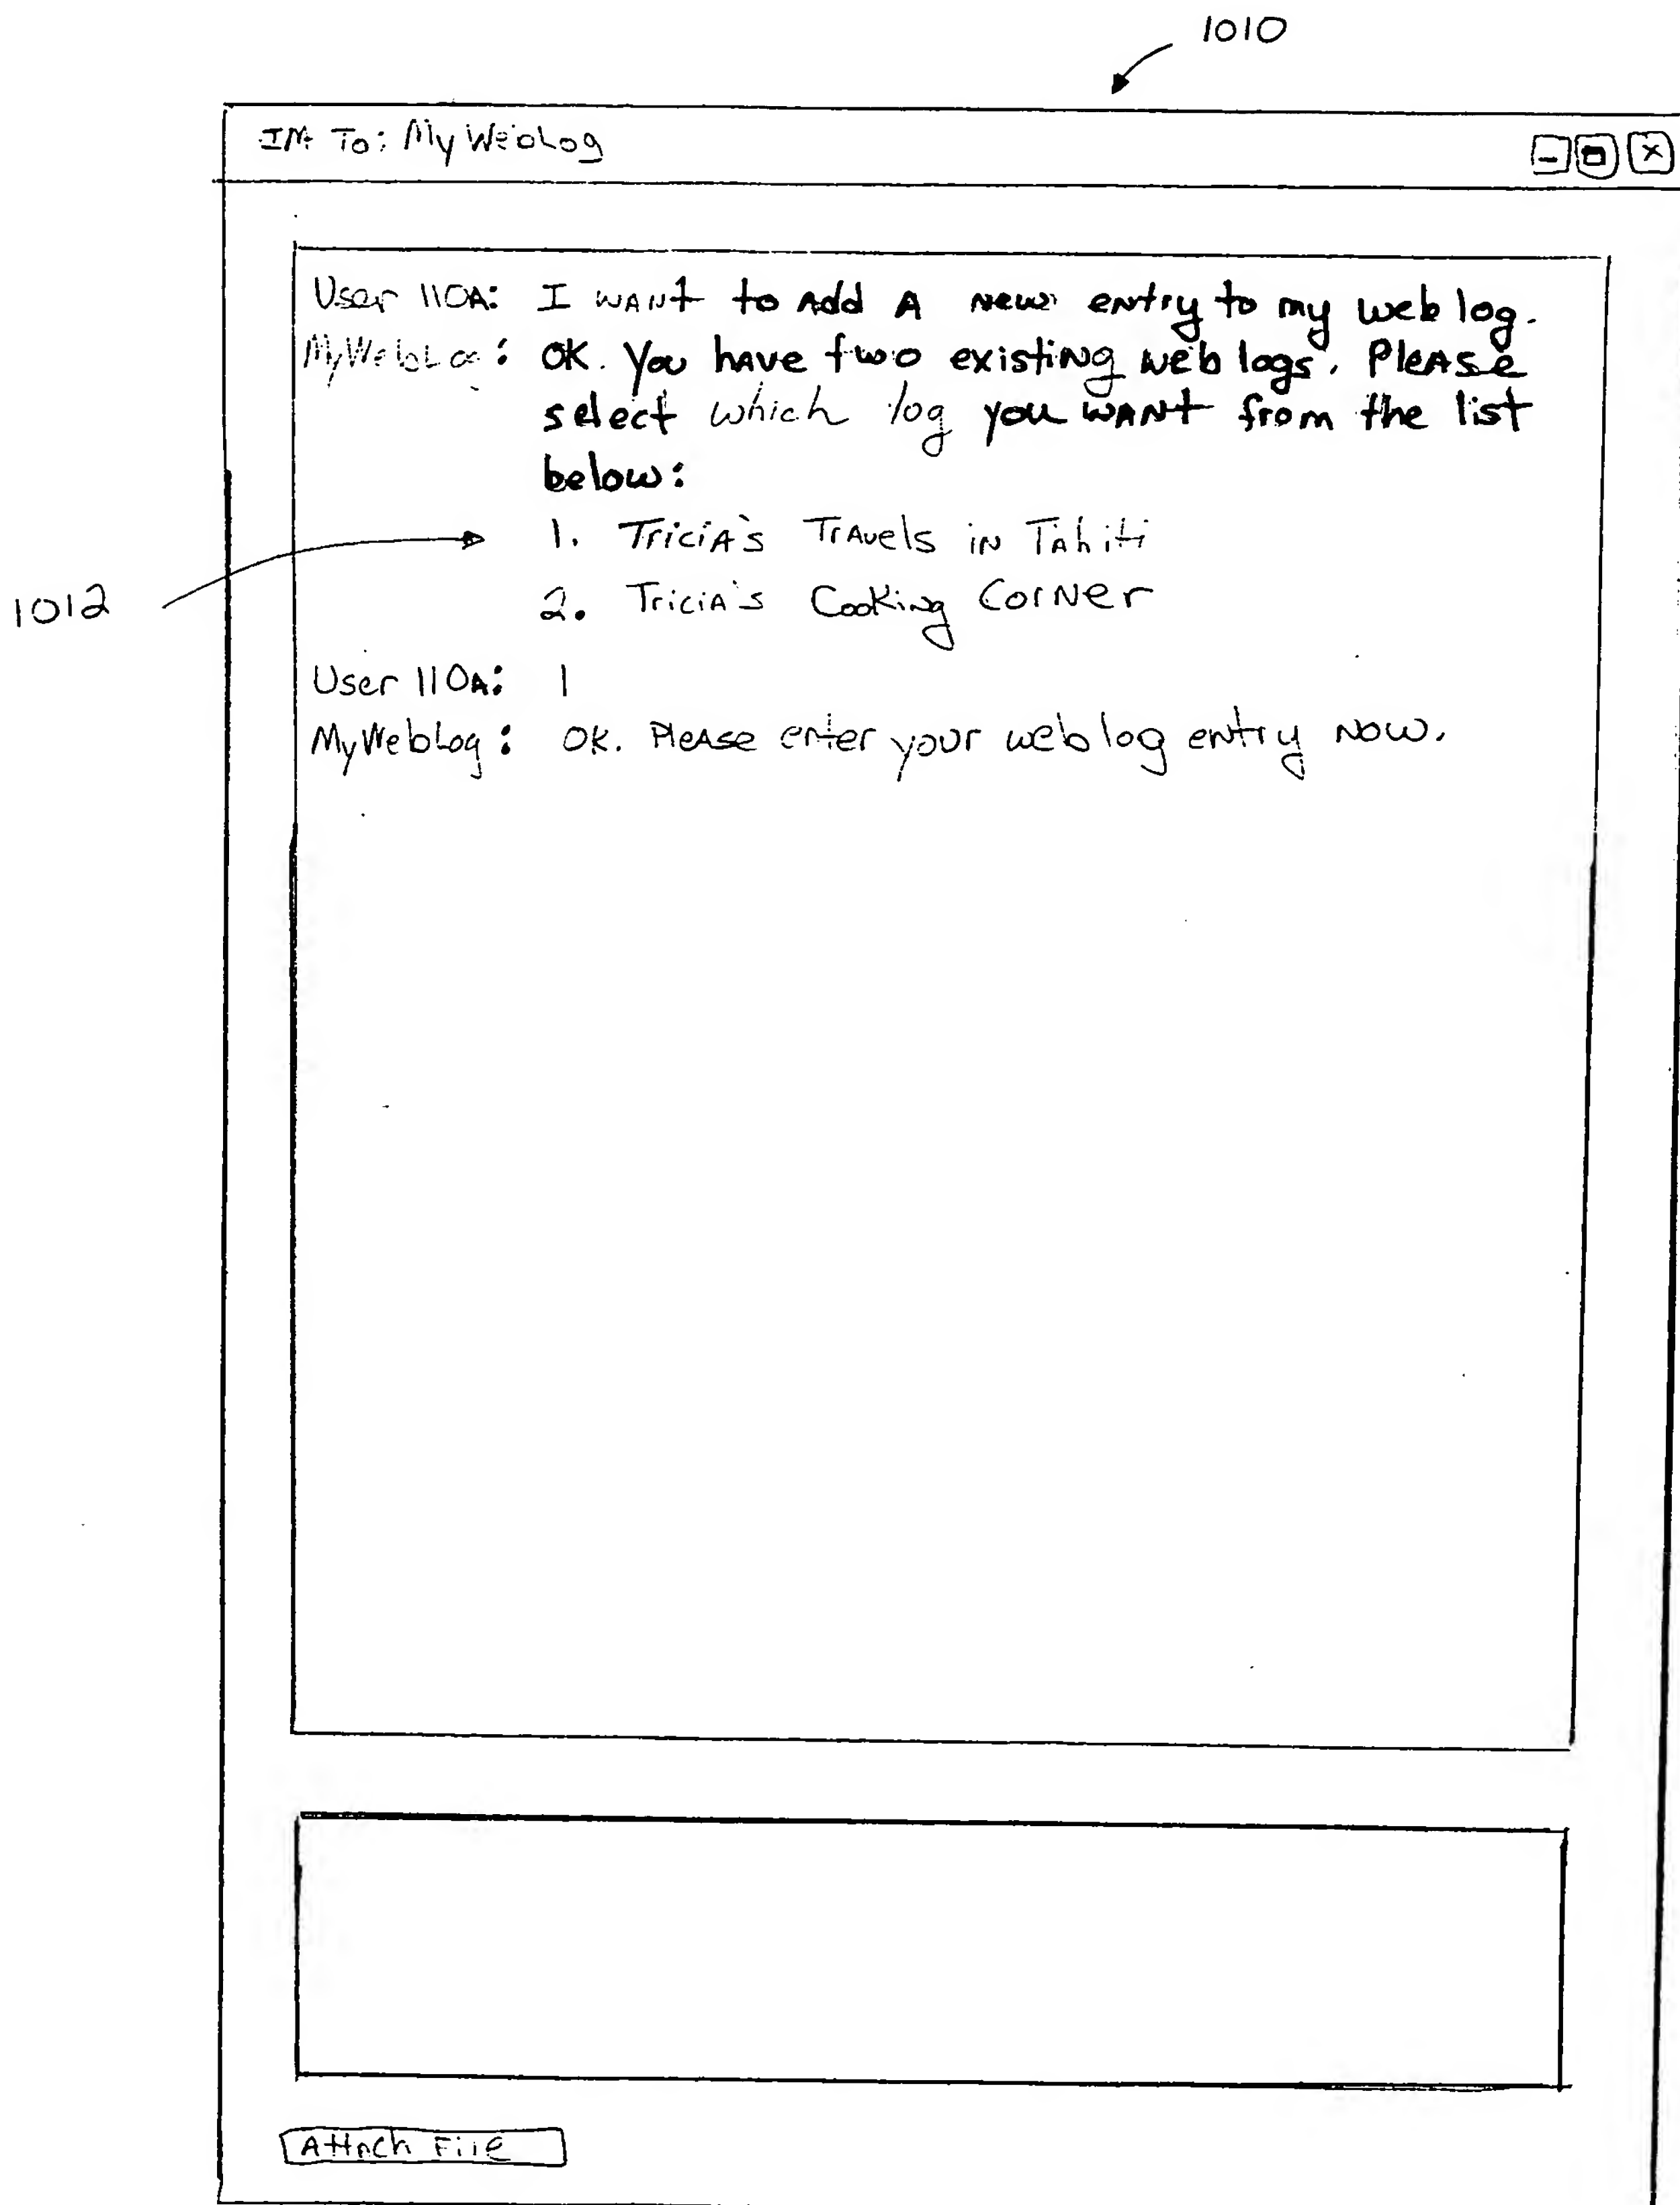 1010
IM To: MyWebLog
User 110A: I want to add a new entry to my web log.
MyWebLog: OK. You have two existing web logs. Please
select which log you want from the list
below:
1. Tricia's Travels in Tahiti
1012
2. Tricia's Cooking Corner
User 110A: 1
MyWebLog: OK. Please enter your web log entry now.
Attach File